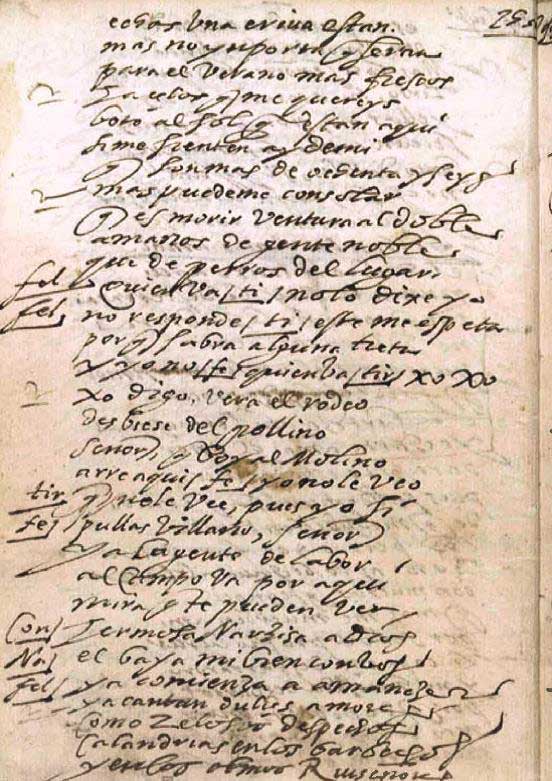 echas una criua estan.
mas no ynporta q seran
para el verano mas frescos
ya celos q me quereys
boto al sol q estan aqui
si me sienten ay de mi
q son mas de ochenta y seys
mas puedeme consolar
q es morir ventura al doble
a manos de gente noble
que de perros del lugar.
fel quien va / ti / no lo dixe yo
fel no responde / ti / este me espeta
por q sabra alguna treta
y yo no / fe / quien va / tir / xo xo
xo digo, vera el rodeo
desbiese del pollino
señor, q voy al molino
arre aqui / fe / yo no le veo
tir q no le vee, pues yo si
fe pullas villano, señor
ya la gente de labor
al campo va por aqui
mira q te pueden ver
Con Hermosa Narzisa a dios
Na el vaya mi bien con bos
fel ya comienza a amanezer
ya cantan dulces amores
como zelosos despechos
calandrias en los barbechos
y en los olmos Ruiseñores